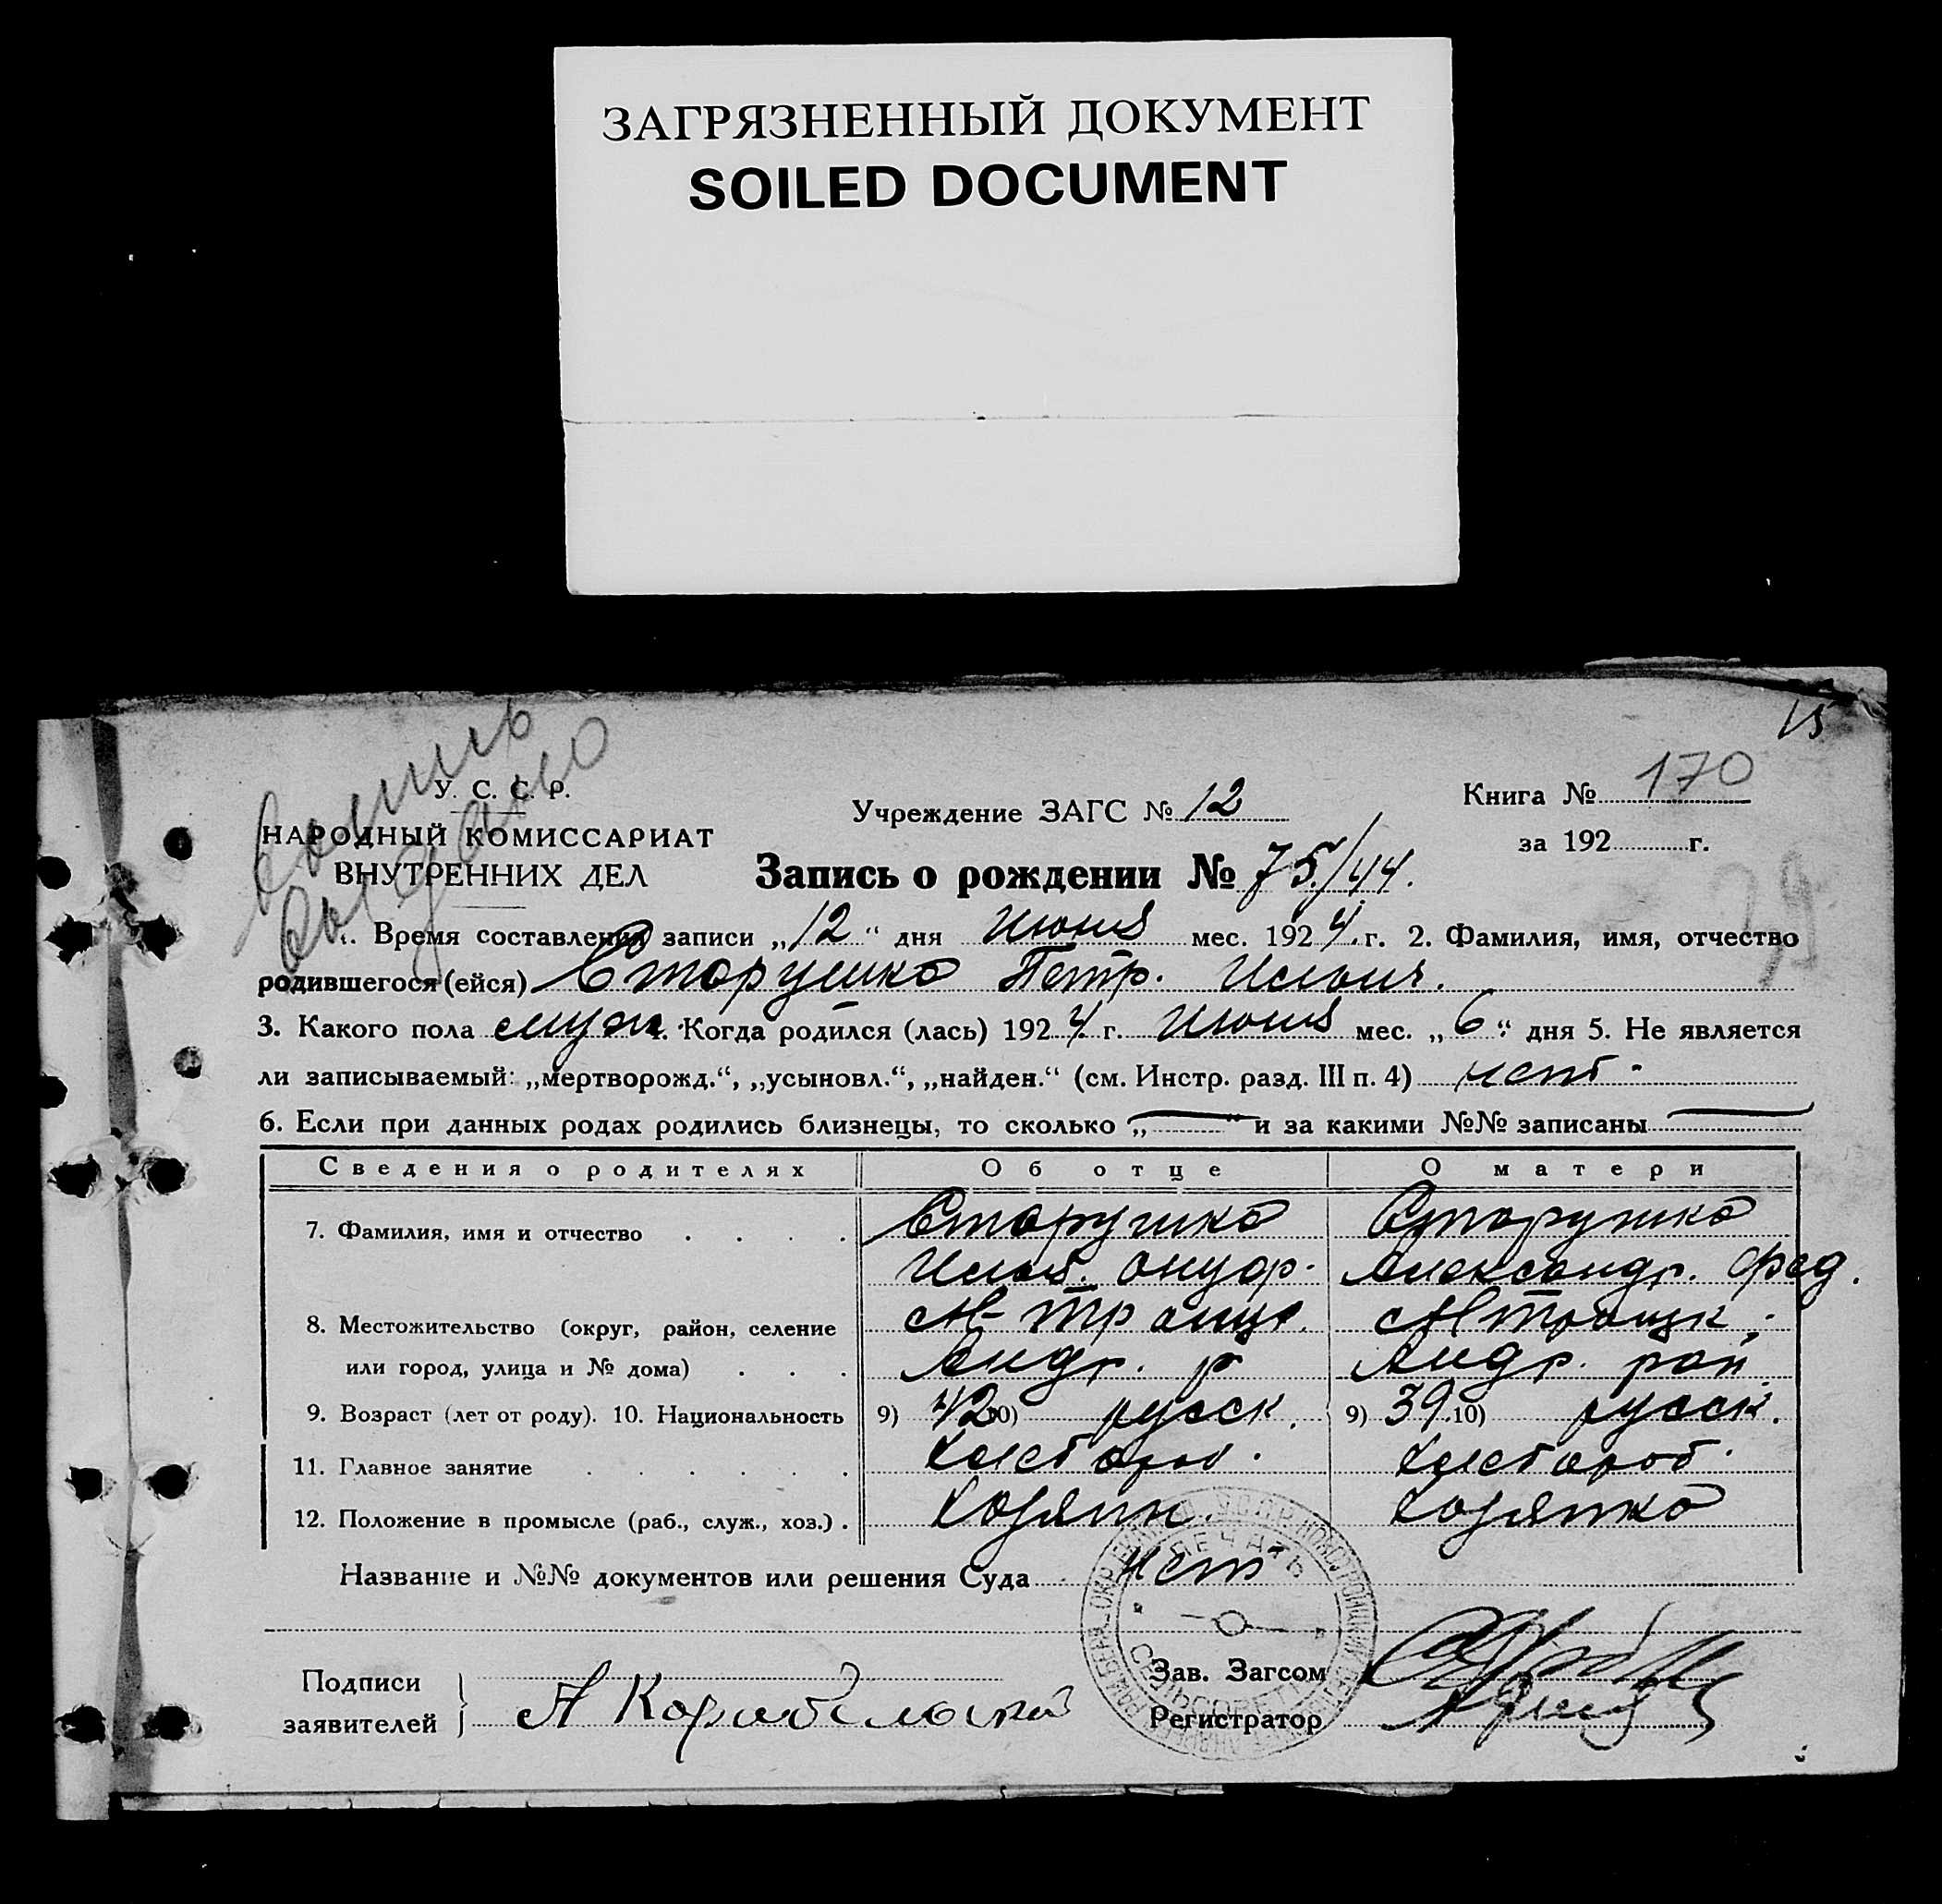 ЗАГРЯЗНЕННЫЙ ДОКУМЕНТ
SOILED DOCUMENT
15
У. С. С. Р.
НАРОДНЫЙ КОМИССАРИАТ
ВНУТРЕННИХ ДЕЛ
Учреждение ЗАГС № 12
Книга № 170
за 192 г.
Запись о рождении № 75/44.
1. Время составления записи „12“ дня Июня мес. 1924 г. 2. Фамилия, имя, отчество
родившегося (ейся) Старушко Петр. Ильич.
3. Какого пола муж. 4. Когда родился (лась) 1924 г. Июня мес. „6“ дня 5. Не является
ли записываемый: „мертворожд.“, „усыновл.“, „найден.“ (см. Инстр. разд. III п. 4) нет.
6. Если при данных родах родились близнецы, то сколько „—“ и за какими №№ записаны —
Сведения о родителях Об отце О матери
7. Фамилия, имя и отчество Старушко Старушко
Александр. Фед.
8. Местожительство (округ, район, селение
или город, улица и № дома) Андр. р Андр. рай.
9. Возраст (лет от роду). 10. Национальность 9) 42 10) русск. 9) 39 10) русск.
11. Главное занятие хлебороб. хлебороб.
12. Положение в промысле (раб., служ., хоз.) Хозяин. Хозяйка
Название и №№ документов или решения Суда нет
ПЕЧАТЬ
Подписи
заявителей
Зав. Загсом
Регистратор